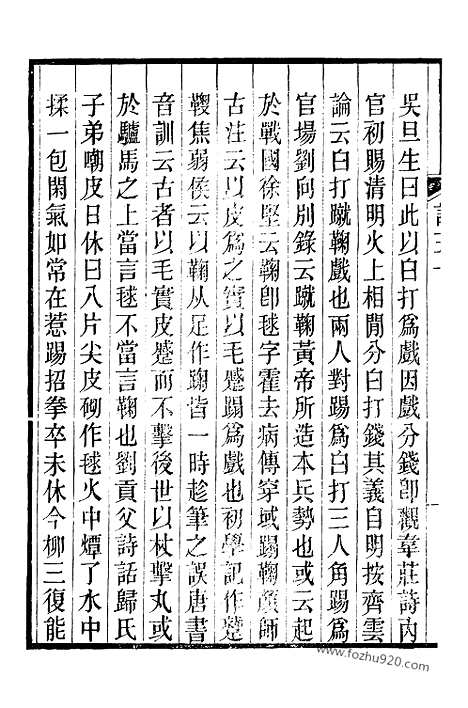 吳旦生曰此以白打爲戲因戲分錢卽觀韋莊詩內
官初賜淸明火上相閒分白打錢其義自明按齊雲
論云白打蹴鞠戲也兩人對踢爲白打三人角踢爲
官場劉向別錄云蹴鞠黃帝所造本兵勢也或云起
於戰國徐堅云鞠卽毬字霍去病傳穿域蹋鞠顏師
古注云以皮爲之實以毛蹵蹋爲戲也初學記作蹵
鞠焦弱侯云以鞠从足作踘皆一時趁筆之誤唐書
音訓云古者以毛實皮蹵而不擊後世以杖擊丸或
於驢馬之上當言毬不當言鞠也劉貢父詩話歸氏
子弟嘲皮日休曰八片尖皮砌作毬火中燂了水中
揉一包閑氣如常在惹踢招拳卒未休今柳三復能
www.fozhu920.com